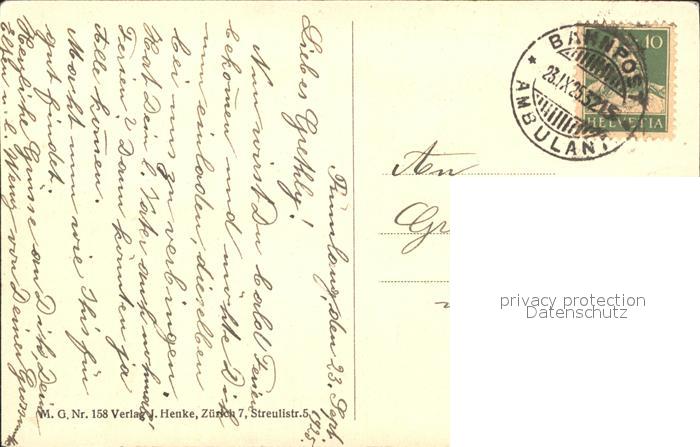 Rümlang, den 23. Sept.
1925.
Liebes Grethly!
Nun wirst Du bald Ferien
bekommen und möchte Dich
nun einladen, dieselben
bei uns zu verbringen
Hat Dein l. Vater auch noch nie
Ferien? Dann könnten ja
Alle kommen.
Macht nun wie Ihr für
gut findet.
Herzliche Grüsse an Dich, Deine
Eltern u. l. von Deiner
An
BAHNPOST
AMBULANT
23.IX.25
10
HELVETIA
privacy protection
Datenschutz
M. G. Nr. 158 Verlag J. Henke, Zürich 7, Streulistr. 5